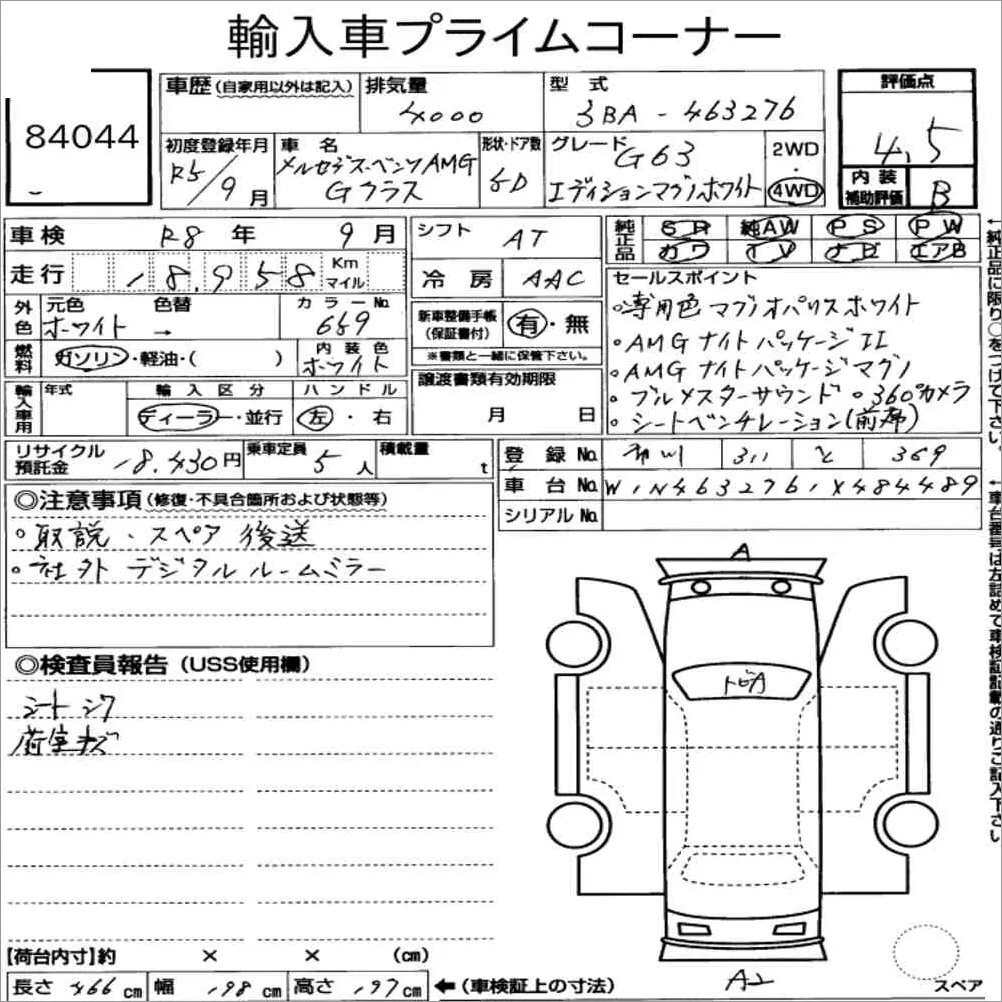 輸入車プライムコーナー
84044
車歴(自家用以外は記入) 排気量 4000 型式 3BA-463276 評価点 4.5
初度登録年月 R5/9月 車名 メルセデス・ベンツAMG Gクラス 形状・ドア数 5D グレード G63 エディションマグノホワイト 2WD 4WD
内装補助評価 B
車検 R8年 9月 シフト AT 純正品 SR 純AW PS PW
カワ TV ナビ エアB
走行 18,958 Km マイル 冷房 AAC
外色 元色 ホワイト 色替 → カラーNo. 689 新車整備手帳(保証書付) 有・無
※書類と一緒に保管下さい。
燃料 ガソリン・軽油・( ) 内装色 ホワイト
輸入車用 年式 輸入区分 ディーラー・並行 ハンドル 左・右 譲渡書類有効期限 月 日
セールスポイント
○専用色マグノオパリスホワイト
○AMGナイトパッケージII
○AMGナイトパッケージマグノ
○ブルメスターサウンド ○360°カメラ
○シートベンチレーション(前席)
←純正品に限り○をつけて下さい。
リサイクル預託金 18,430円 乗車定員 5人 積載量 t
登録No. 311 と 369
車台No. W1N4632761X484489
シリアルNo.
←車台番号は左詰めで車検証記載の通りご記入下さい
◎注意事項(修復・不具合箇所および状態等)
○取説・スペア 後送
○社外 デジタルルームミラー
◎検査員報告(USS使用欄)
シート シワ
荷室キズ
A
トビA
A2
スペア
【荷台内寸】約 × × (cm)
長さ 466cm 幅 198cm 高さ 197cm ←(車検証上の寸法)